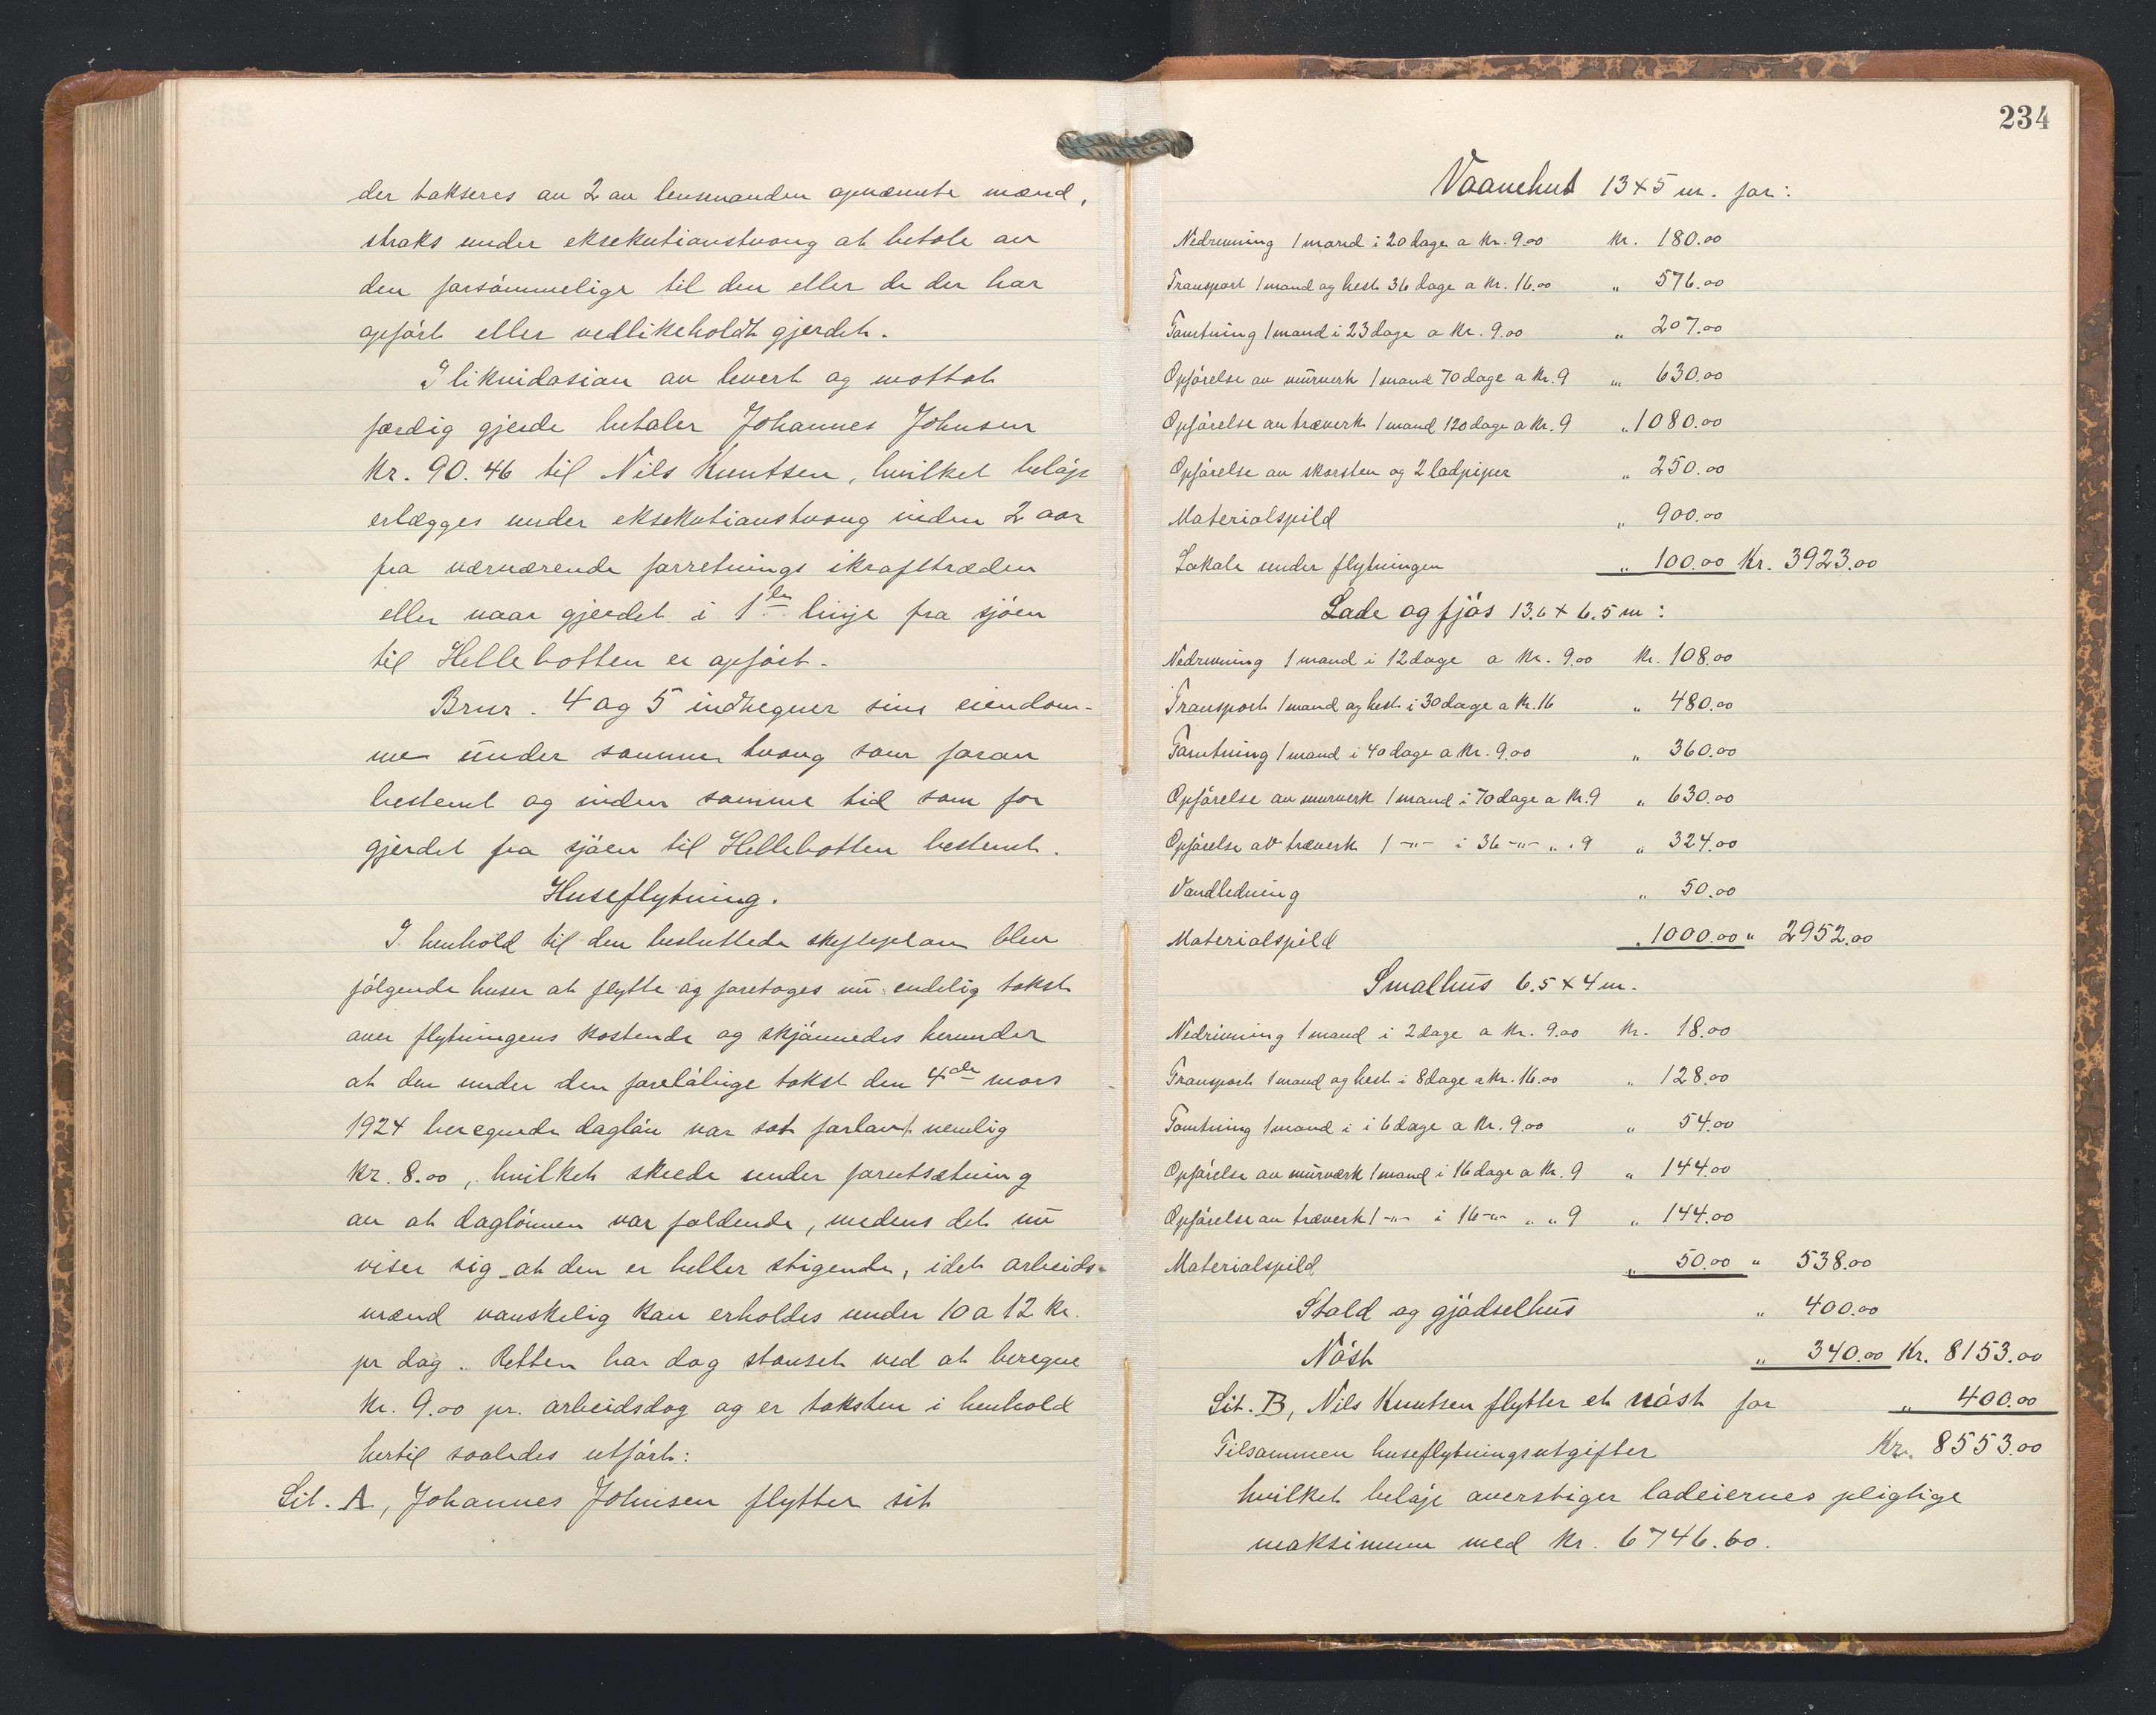 der takseres av 2 av lensmanden opnævnte mænd,
straks under eksekutionstvang at betale av
den forsømmelige til den eller de der har
opført eller vedlikeholdt gjerdet.
I likvidasion av levert og mottat
færdig gjerde betaler Johannes Johnsen
Kr. 90.46 til Nils Knutsen, hvilket beløp
erlægges under eksekutionstvang inden 2 aar
fra værværende forretnings ikrafttræden
eller naar gjerdet i 1ste linje fra sjøen
til Hellebotten er opført.
Brnr. 4 og 5 indhegner sine eiendom-
me under samme tvang som foran
bestemt og inden samme tid som for
gjerdet fra sjøen til Hellebotten bestemt.
Huseflytning.
I henhold til den besluttede skifteplan blev
følgende huser at flytte og foretoges nu endelig takst
over flytningens kostende og skjønnedes herunder
at den under den foreløbige takst den 4de mars
1924 beregnede dagløn var sat for lavt nemlig
kr. 8.00, hvilket skede under forutsætning
av at daglønnen var faldende, medens det nu
viser sig at den er heller stigende, idet arbeids-
mænd vanskelig kan erholdes under 10 a 12 kr.
pr dag. Retten har dog stanset ved at beregne
kr. 9.00 pr. arbeidsdag og er taksten i henhold
hertil saaledes utført:
Lit. A, Johannes Johnsen flytter sit
234
Vaanehus 13 x 5 m. for:
Nedrivning 1 mand i 20 dage a kr. 9.00 kr. 180.00
Transport 1 mand og hest 36 dage a kr. 16.00 " 576.00
Tomtning 1 mand i 23 dage a kr. 9.00 " 207.00
Opførelse av murverk 1 mand 70 dage a kr. 9 " 630.00
Opførelse av træverk 1 mand 120 dage a kr. 9 " 1080.00
Opførelse av skorsten og 2 ladpiper " 250.00
Materialspild " 900.00
Lokale under flytningen " 100.00 Kr. 3923.00
Lade og fjøs 13.6 x 6.5 m:
Nedrivning 1 mand i 12 dage a kr. 9.00 kr. 108.00
Transport 1 mand og hest i 30 dage a kr. 16 " 480.00
Tomtning 1 mand i 40 dage a kr. 9.00 " 360.00
Opførelse av murverk 1 mand i 70 dage a kr. 9 " 630.00
Opførelse av træverk 1 -"- i 36 -"- " " 9 " 324.00
Vandledning " 50.00
Materialspild " 1000.00 " 2952.00
Smalhus 6.5 x 4 m.
Nedrivning 1 mand i 2 dage a kr. 9.00 kr. 18.00
Transport 1 mand og hest i 8 dage a kr. 16.00 " 128.00
Tomtning 1 mand i i 6 dage a kr. 9.00 " 54.00
Opførelse av murværk 1 mand i 16 dage a kr. 9 " 144.00
Opførelse av træverk 1 -"- i 16 -"- " " 9 " 144.00
Materialspild " 50.00 " 538.00
Stald og gjødselhus " 400.00
Nøst " 340.00 Kr. 8153.00
Lit. B, Nils Knutsen flytter et nøst for " 400.00
Tilsammen huseflytningsutgifter Kr. 8553.00
hvilket beløp overstiger lodeiernes pligtige
maksimum med kr. 6746.60.